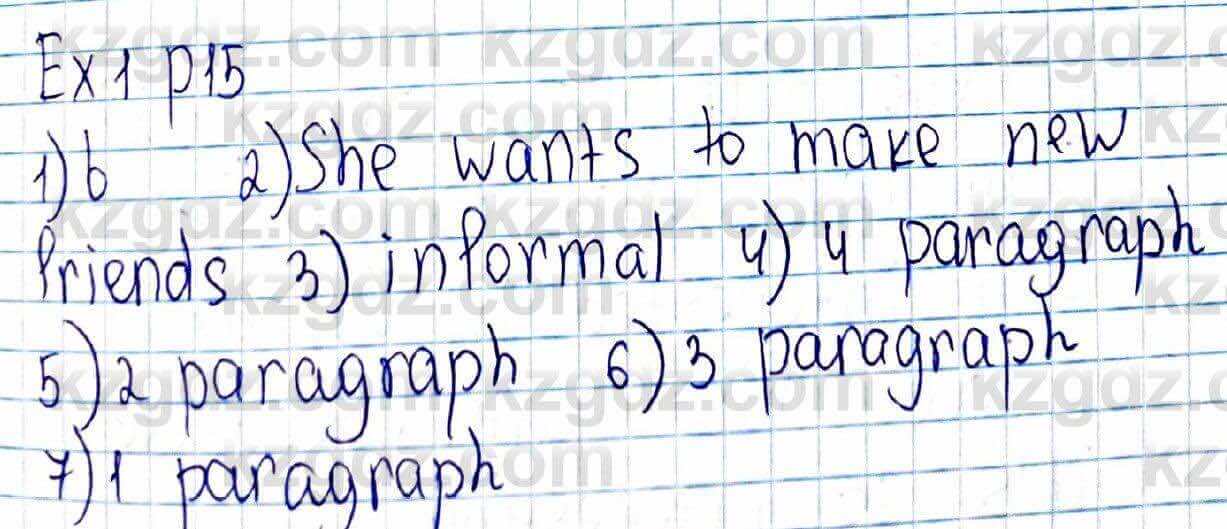 Ex 1 p15
1) b 2) She wants to make new
friends 3) informal 4) 4 paragraph
5) 2 paragraph 6) 3 paragraph
7) 1 paragraph